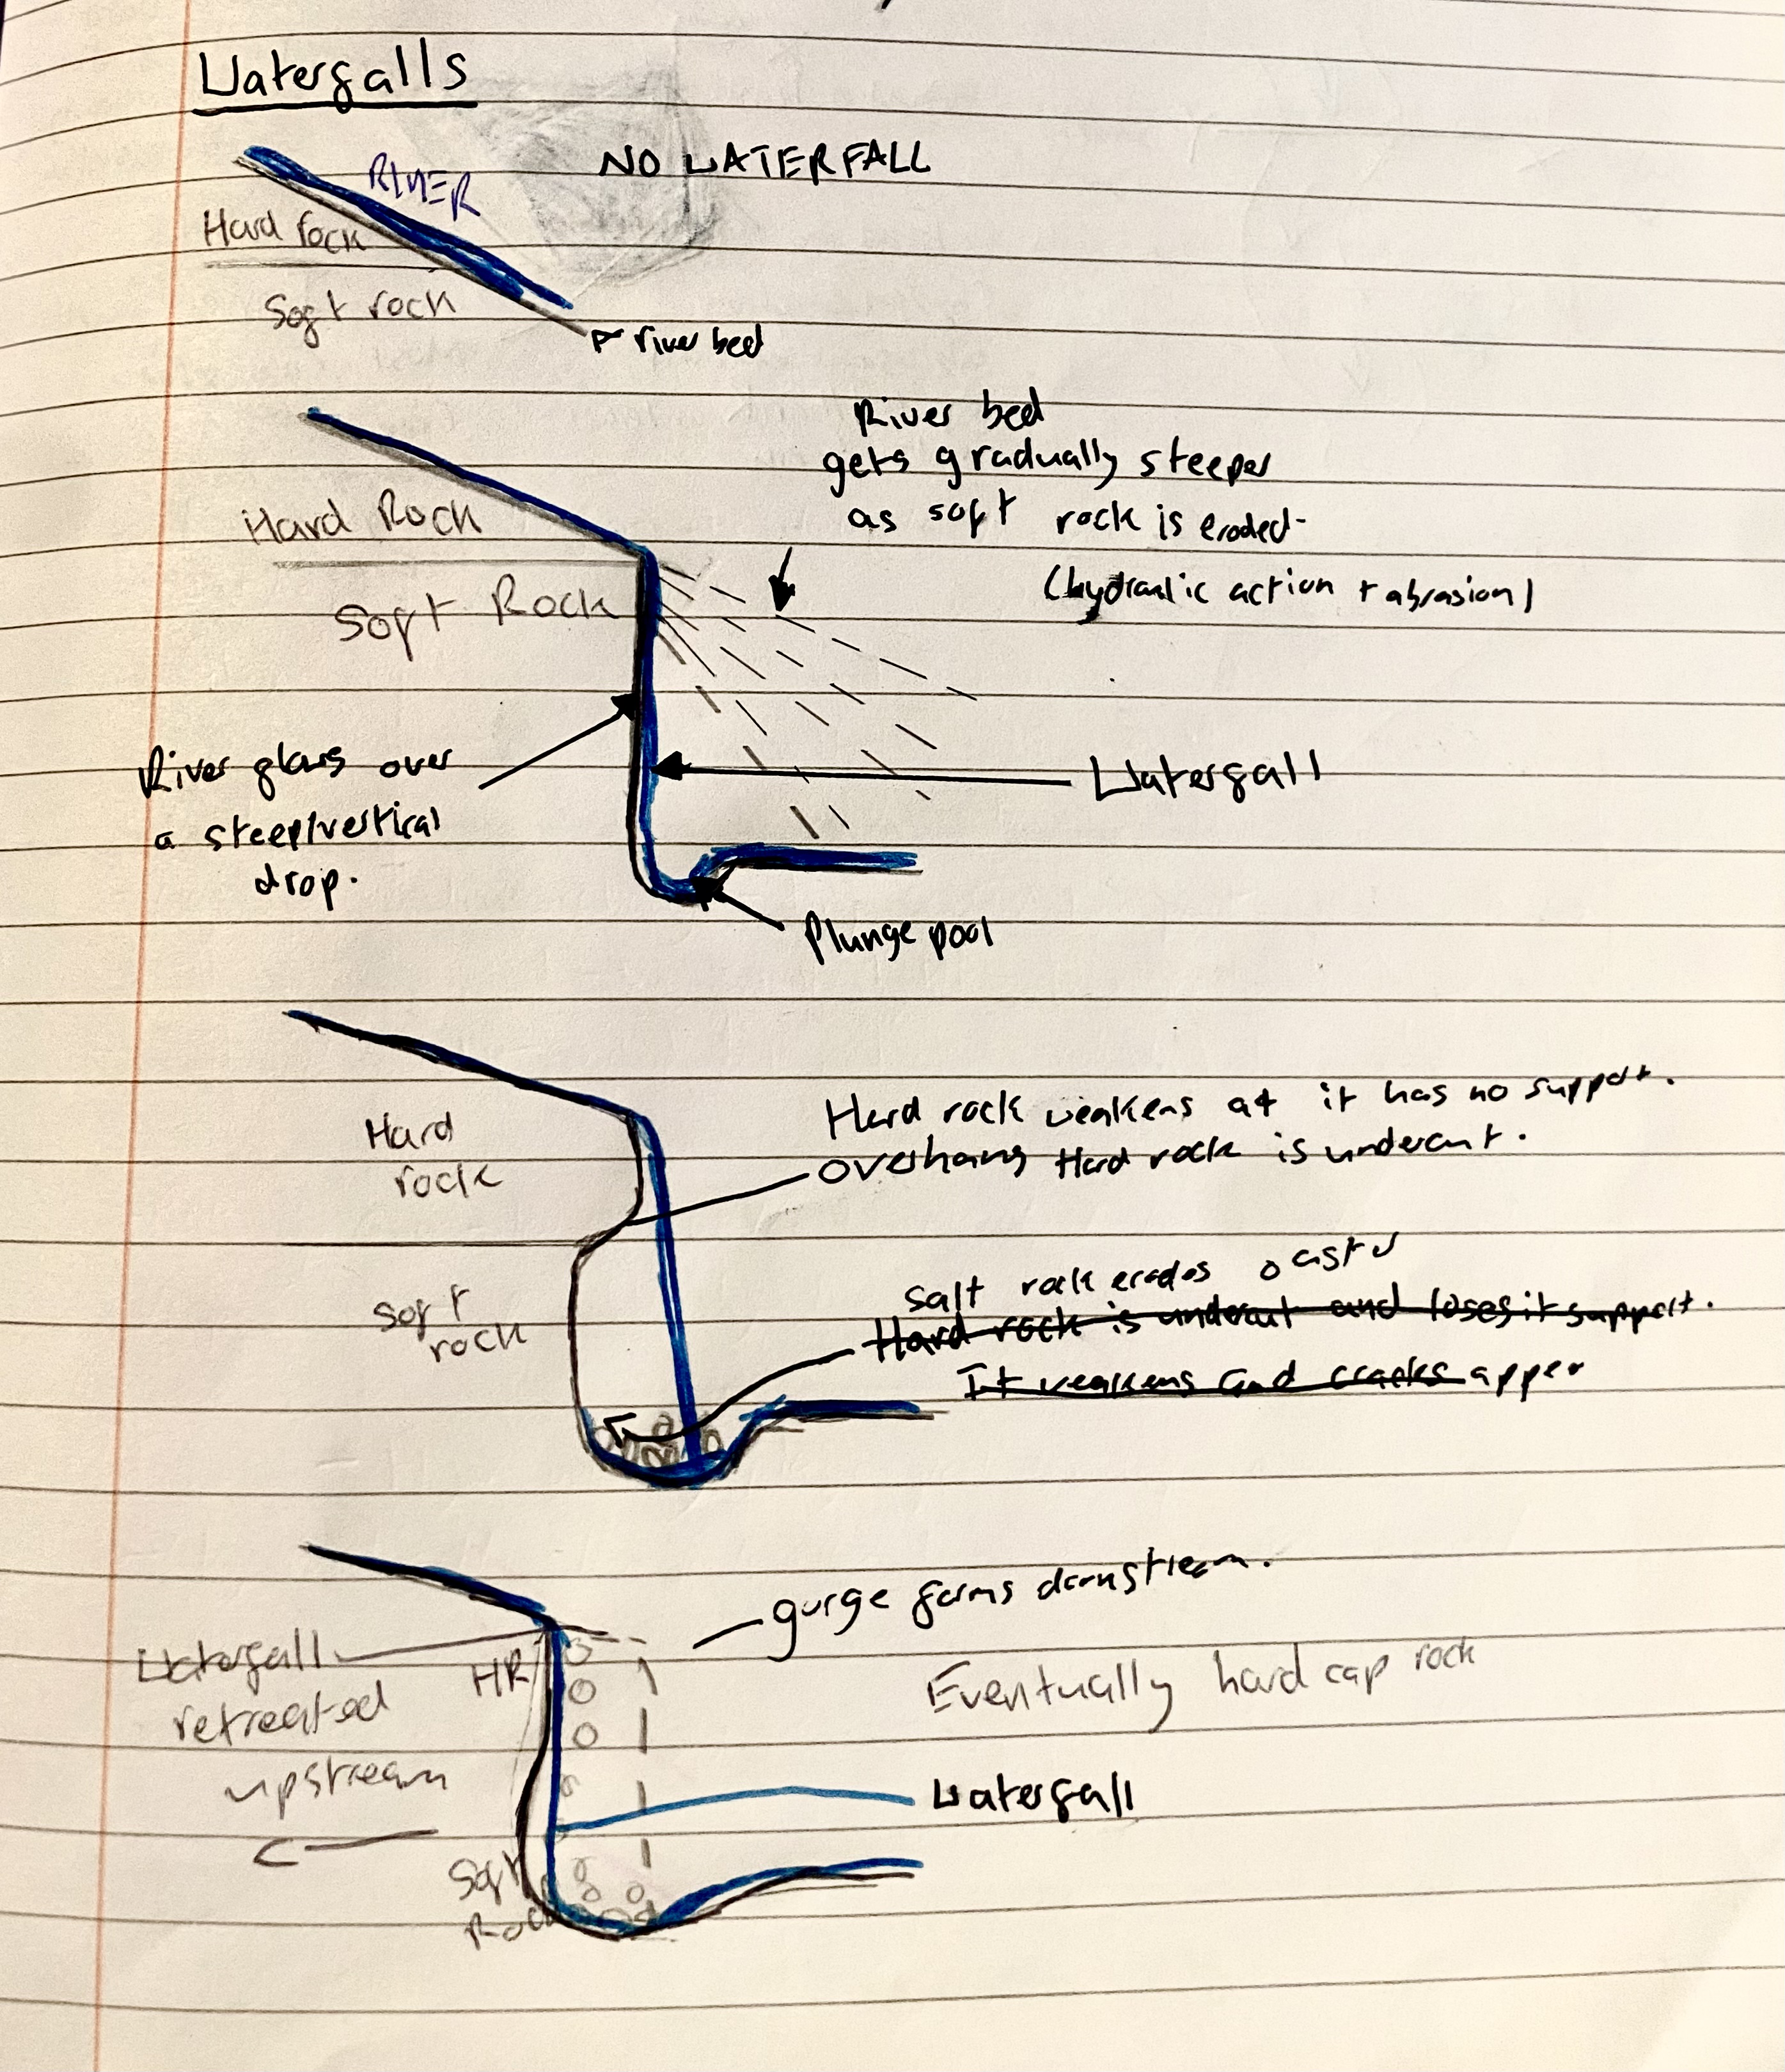 Waterfalls
NO WATERFALL
RIVER
Hard rock
Soft rock
river bed
River bed
gets gradually steeper
as soft rock is eroded
(hydraulic action + abrasion)
Hard Rock
Soft Rock
River flows over
a steep/vertical
drop.
Waterfall
Plunge pool
Hard rock weakens as it has no support.
overhang Hard rock is undercut.
Hard
rock
Soft
rock
salt rock erodes
Hard rock is undercut and loses it support.
It weakens and cracks apper
gorge forms downstream.
Waterfall
retreated
upstream
HR
Eventually hard cap rock
Waterfall
Soft
Rock